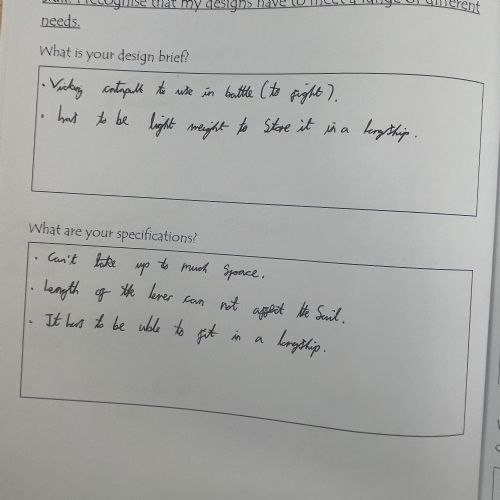 stuff. I recognise that my designs have to meet a range of different
needs.
What is your design brief?
· Viking catapult to use in battle (to fight).
· has to be light weight to store it in a longship.
What are your specifications?
· Can't take up to much space.
· Length of the lever can not affect the Sail.
· It has to be able to fit in a longship.